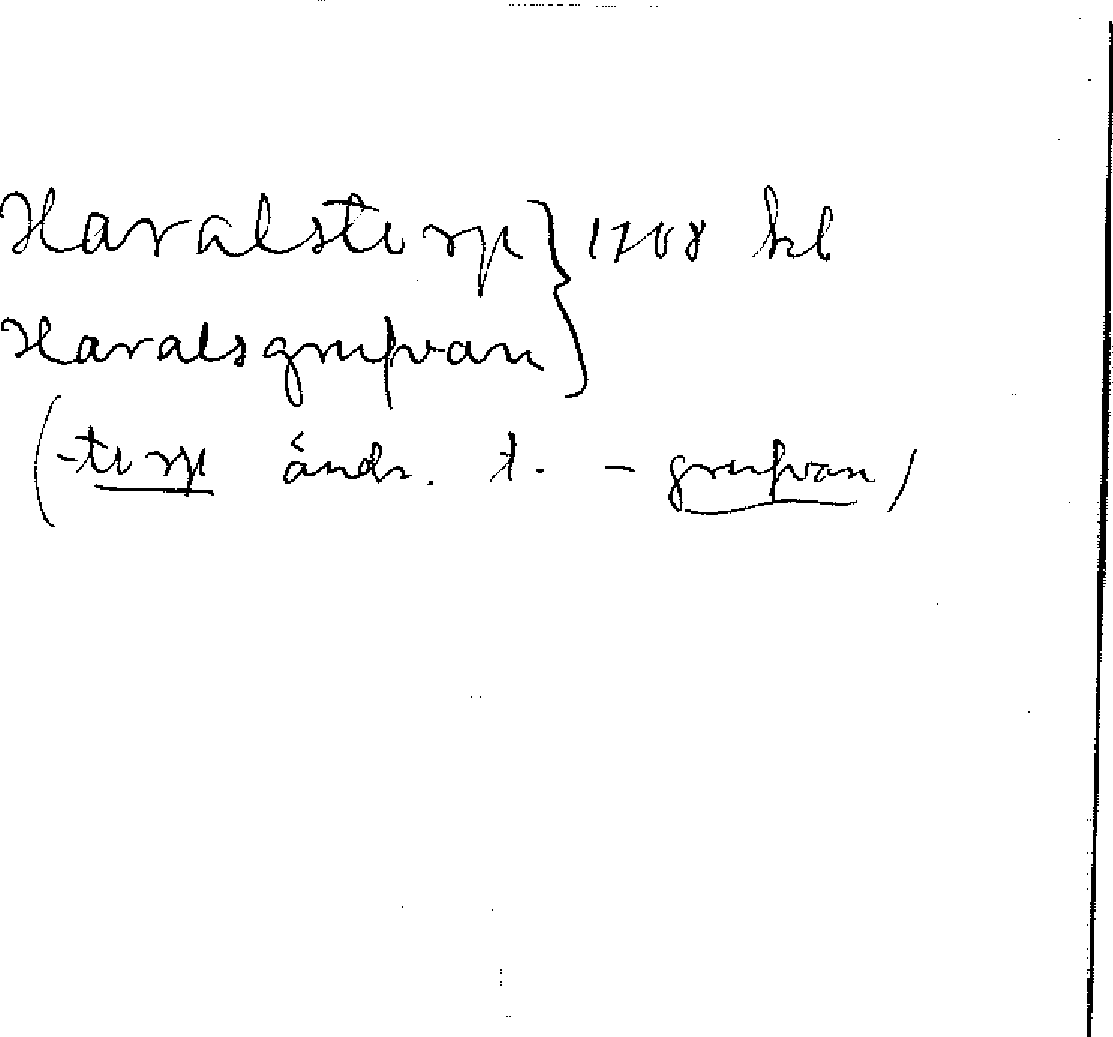 Haralstorp } 1708 hl
Haralsgrufvan
(-torp ändr. t. - grufvan)